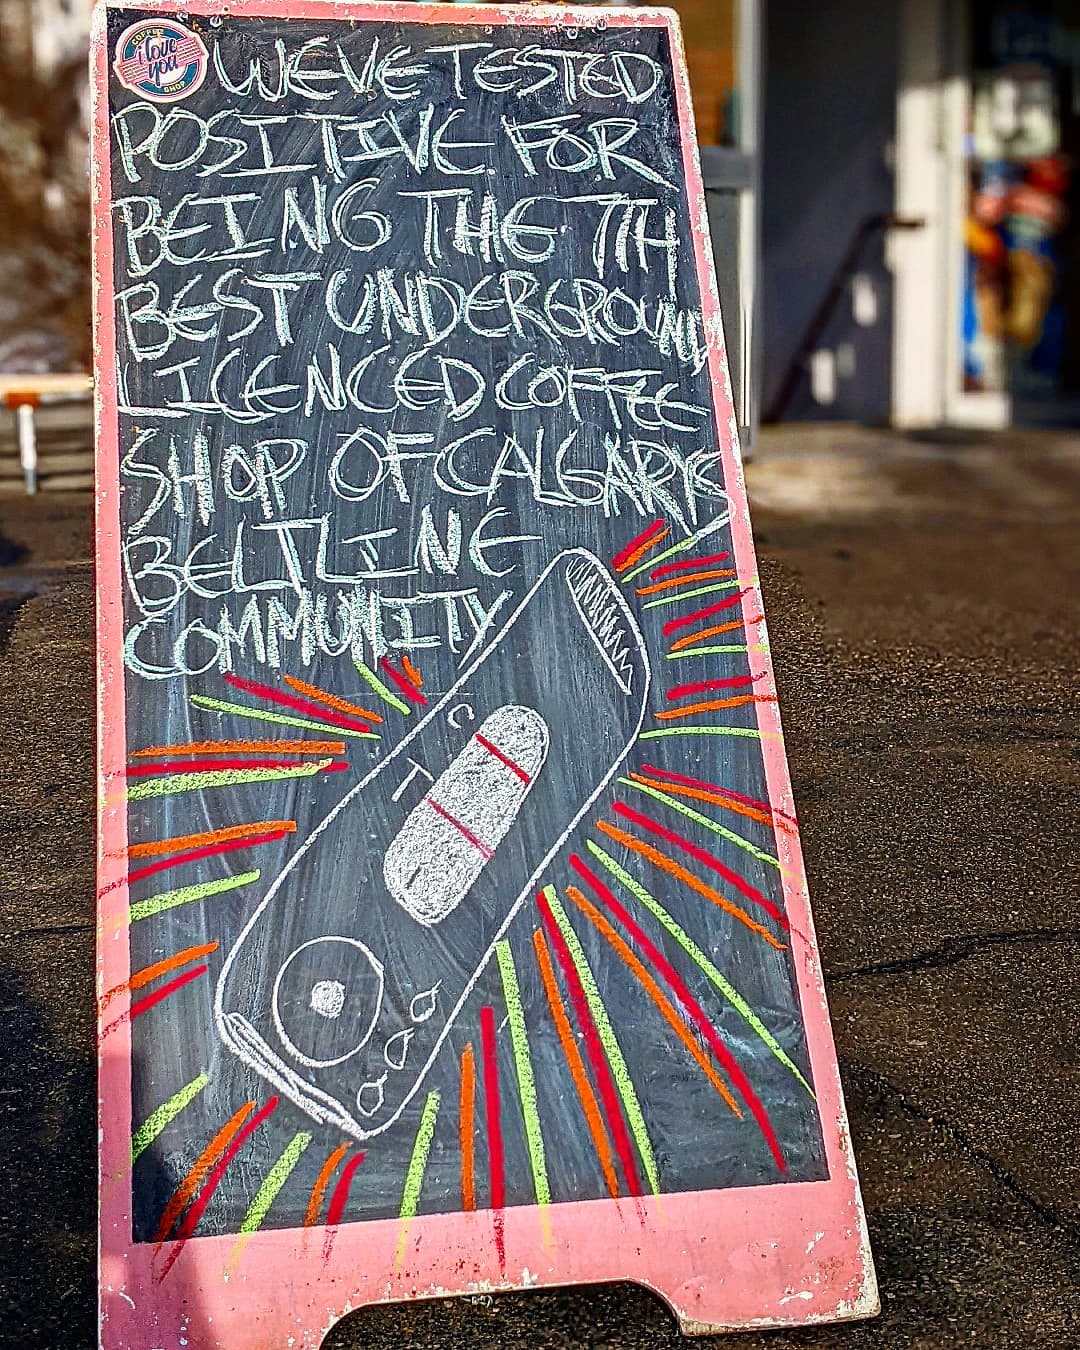 COFFEE
i love
you
SHOP
WEVE TESTED
POSITIVE FOR
BEING THE 7TH
BEST UNDERGROUND
LICENCED COFFEE
SHOP OF CALGARYS
BELTLINE
COMMUNITY
C
T